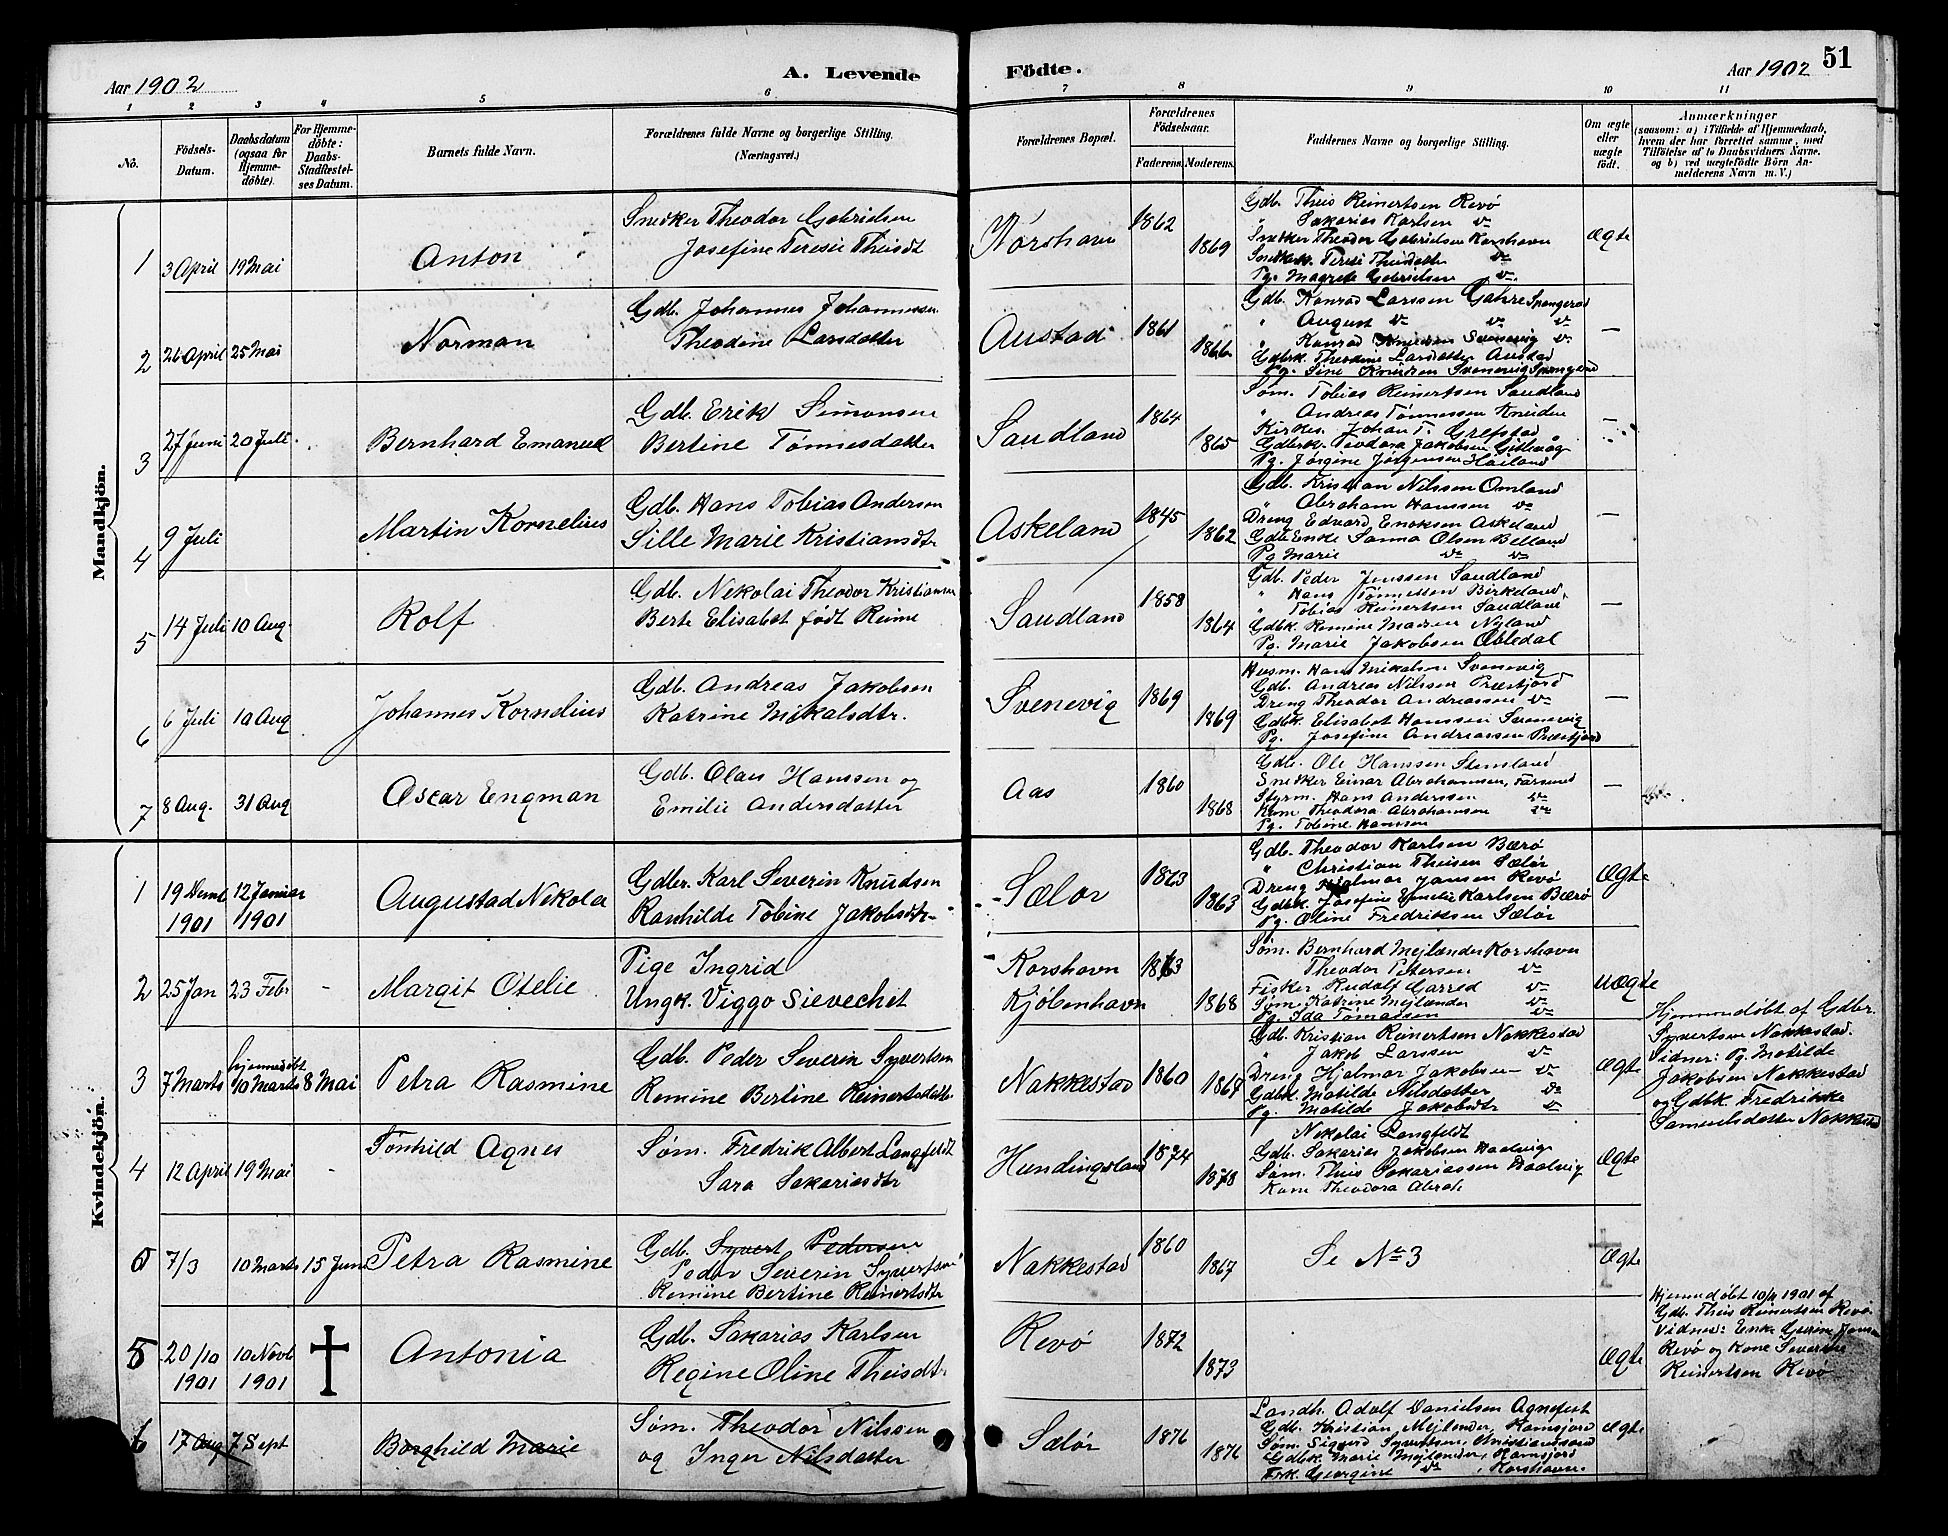 51
Aar 1902
A. Levende
Födte.
Aar 1902
1 2 3 4 5 6 7 8 9 10 11
No.
Födsels-Datum.
Daabsdatum (ogsaa for Hjemme-döbte).
For Hjemme-döbte: Daabs-Stadfæstel-ses Datum.
Barnets fulde Navn.
Forældrenes fulde Navne og borgerlige Stilling. (Næringsvei.)
Forældrenes Bopæl.
Forældrenes Födselsaar.
Faderens. Moderens.
Faddernes Navne og borgerlige Stilling.
Om ægte eller uægte födt.
Anmærkninger
(saasom: a) i Tilfælde af Hjemmedaab, hvem der har forrettet samme, med Tilföielse af to Daabsvidners Navne. og b) ved uægtefödte Börn An-melderens Navn m. V.)
Mandkjön.
1
3 April
19 Mai
Anton
Snedker Theodor Gabrielsen
Josefine Teresie Theisdt
Korshavn
1862
1869
Gdb. Theis Reinertsen Revø
" Sakarias Karlsen do
Snedker Theodor Gabrielsen Korshavn
Snedkerk. Teresi Theisdatter do
Pg. Magrete Gabrielsen do
Ægte
2
26 April
25 Mai
Norman
Gdb. Johannes Johannessen
Theodine Larsdatter
Austad
1861
1866
Gdb. Konrad Larssen Gahre Spangereid
" August do do do
" Konrad Knudsen Svenevig do
Gdbk. Theodine Larsdatter Austad
Pg. Sine Knudsen Svenevig Spangereid
—
3
27 Juni
20 Juli
Bernhard Emanuel
Gdb. Erik Simonsen
Bertine Tønnesdatter
Sandland
1864
1865
Søm. Tobias Reinertsen Sandland
" Andreas Tønnessen Kneiden
Kirkes. Johan T. Grefstad
Gdbrk. Teodora Jakobsen Gitlevåg
Pg. Jørgine Jørgensen Høiland
—
4
9 Juli
Martin Kornelius
Gdb. Hans Tobias Andersen
Sille Marie Kristiansdtr
Askeland
1845
1862
Gdb. Kristian Nilssen Omland
" Abraham Hanssen do
Dreng Edvard Enoksen Askeland
Gdb Enke Sanna Olsen Belland
Pg Marie do do
—
5
14 Juli
10 Aug.
Rolf
Gdb. Nekolai Theodor Kristiansen
Berte Elisabet født Reime
Sandland
1858
1864
Gdb. Peder Jenssen Sandland
" Hans Tønnessen Birkeland
" Tobias Reinertsen Sandland
Gdbk. Romine Madsen Nyland
Pg. Marie Jakobsen Øbledal
—
6
6 Juli
10 Aug
Johannes Kornelius
Gdb. Andreas Jakobsen
Katrine Mikalsdtr.
Svenevig
1869
1869
Husm. Hans Mikalsen Svenevig
Gdb. Andreas Nilssen Præstfjord
Dreng Theodor Andreassen do
Gdbk. Elisabet Hanssen Svenevig
Pg. Josefine Andreassen Præstfjord
—
7
8 Aug.
31 Aug
Oscar Engman
Gdb. Olaus Hanssen og
Emilie Andersdatter
Aas
1860
1868
Gdb. Ole Hanssen Stensland
Snedker Einar Abrahamsen, Farsund
Styrm. Hans Anderssen do
Kone Theodora Abrahamsen do
Pg. Tobine Hanssen
—
Kvindekjön.
1
19 Demb 1901
12 Januar 1901
Augustad Nekola
Gdbr. Karl Severin Knudsen
Ranhilde Tobine Jakobsdtr
Sælør
1863
Gdb. Theodor Karlsen Bærø
" Christian Theisen Sælør
Dreng Hjalmar Jansen Revø
Gdbk. Josefine Emelie Karlsen Bærø
Pg. Oline Fredriksen Sælør
Ægte
2
25 Jan
23 Febr
-
Margit Otelie
Pige Ingrid
Ungk. Viggo Sievechet
Korshavn
Kjøbenhavn
1868
Søm. Bernhard Mejlænder Korshavn
Theodor Petersen do
Fisker Rudolf Garred do
Søm. Katrine Mejlænder do
Pg. Ida Tomassen do
Uægte
3
7 Marts
hjemmedøbt 10 Marts
8 Mai
Petra Rasmine
Gdb. Peder Severin Syvertsen
Romine Bertine Reinertsdatter
Nakkestad
1860
1867
Gdb. Kristian Reinertsen Nakkestad
" Jakob Larssen do
Dreng Hjalmar Jakobsen do
Gdbk. Matilde Nilsdatter do
Pg. Matilde Jakobsdtr do
Ægte
Hjemmedøbt af Gdbr.
Syvertsen Nakkestad.
Vidner: Pg. Matilde
Jakobsen Nakkestad
og Gdbk. Fredrikke
Samuelsdatter Nakkestad
4
12 April
19 Mai
-
Tønhild Agnes
Søm. Fredrik Albert Langfeldt
Sara Sakariasdtr
Hundingsland
1874
1878
Nekolai Langfeldt
Gdb. Sakarias Jakobsen Haalvig
Søm. Theis Sakariassen Haalvig
Kone Theodora Abrah
Ægte
5
7/3
10 Marts
15 Juni
Petra Rasmine
Gdb. Syvert Pedersen
Peder Severin Syvertsen
Romine Bertine Reinertsdtr
Nakkestad
1860
1867
Se No 3
Ægte
5
20/10 1901
10 Novb 1901
Antonia
Gdb. Sakarias Karlsen
Regine Oline Theisdtr
Revø
1872
1873
Ægte
Hjemmedøbt 10/11 1901 af
Gdb. Theis Reinertsen Revø.
Vidner: Enke Gurine Jansen
Revø og Kone Severine
Reinertsen Revø
6
17 Aug
7 Sept
Borghild Marie
Søm. Theodor Nilssen
og Inger Nilsdatter
Sælør
1876
1876
Landh. Adolf Danielsen Agnefest
Gdb. Kristian Mejlender, Ramsfjord
Søm. Sigurd Syvertsen, Christianssand
Gdbk. Marie Mejlender, Ramsfjord
Frk. Georgine do, Korshavn.
Ægte